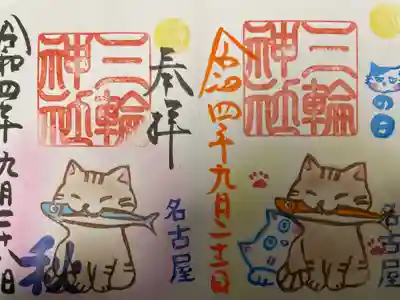 の日
名古屋
三輪
神社
令和四年九月二十二日
奉拝
名古屋
三輪
神社
秋
令和四年九月二十八日